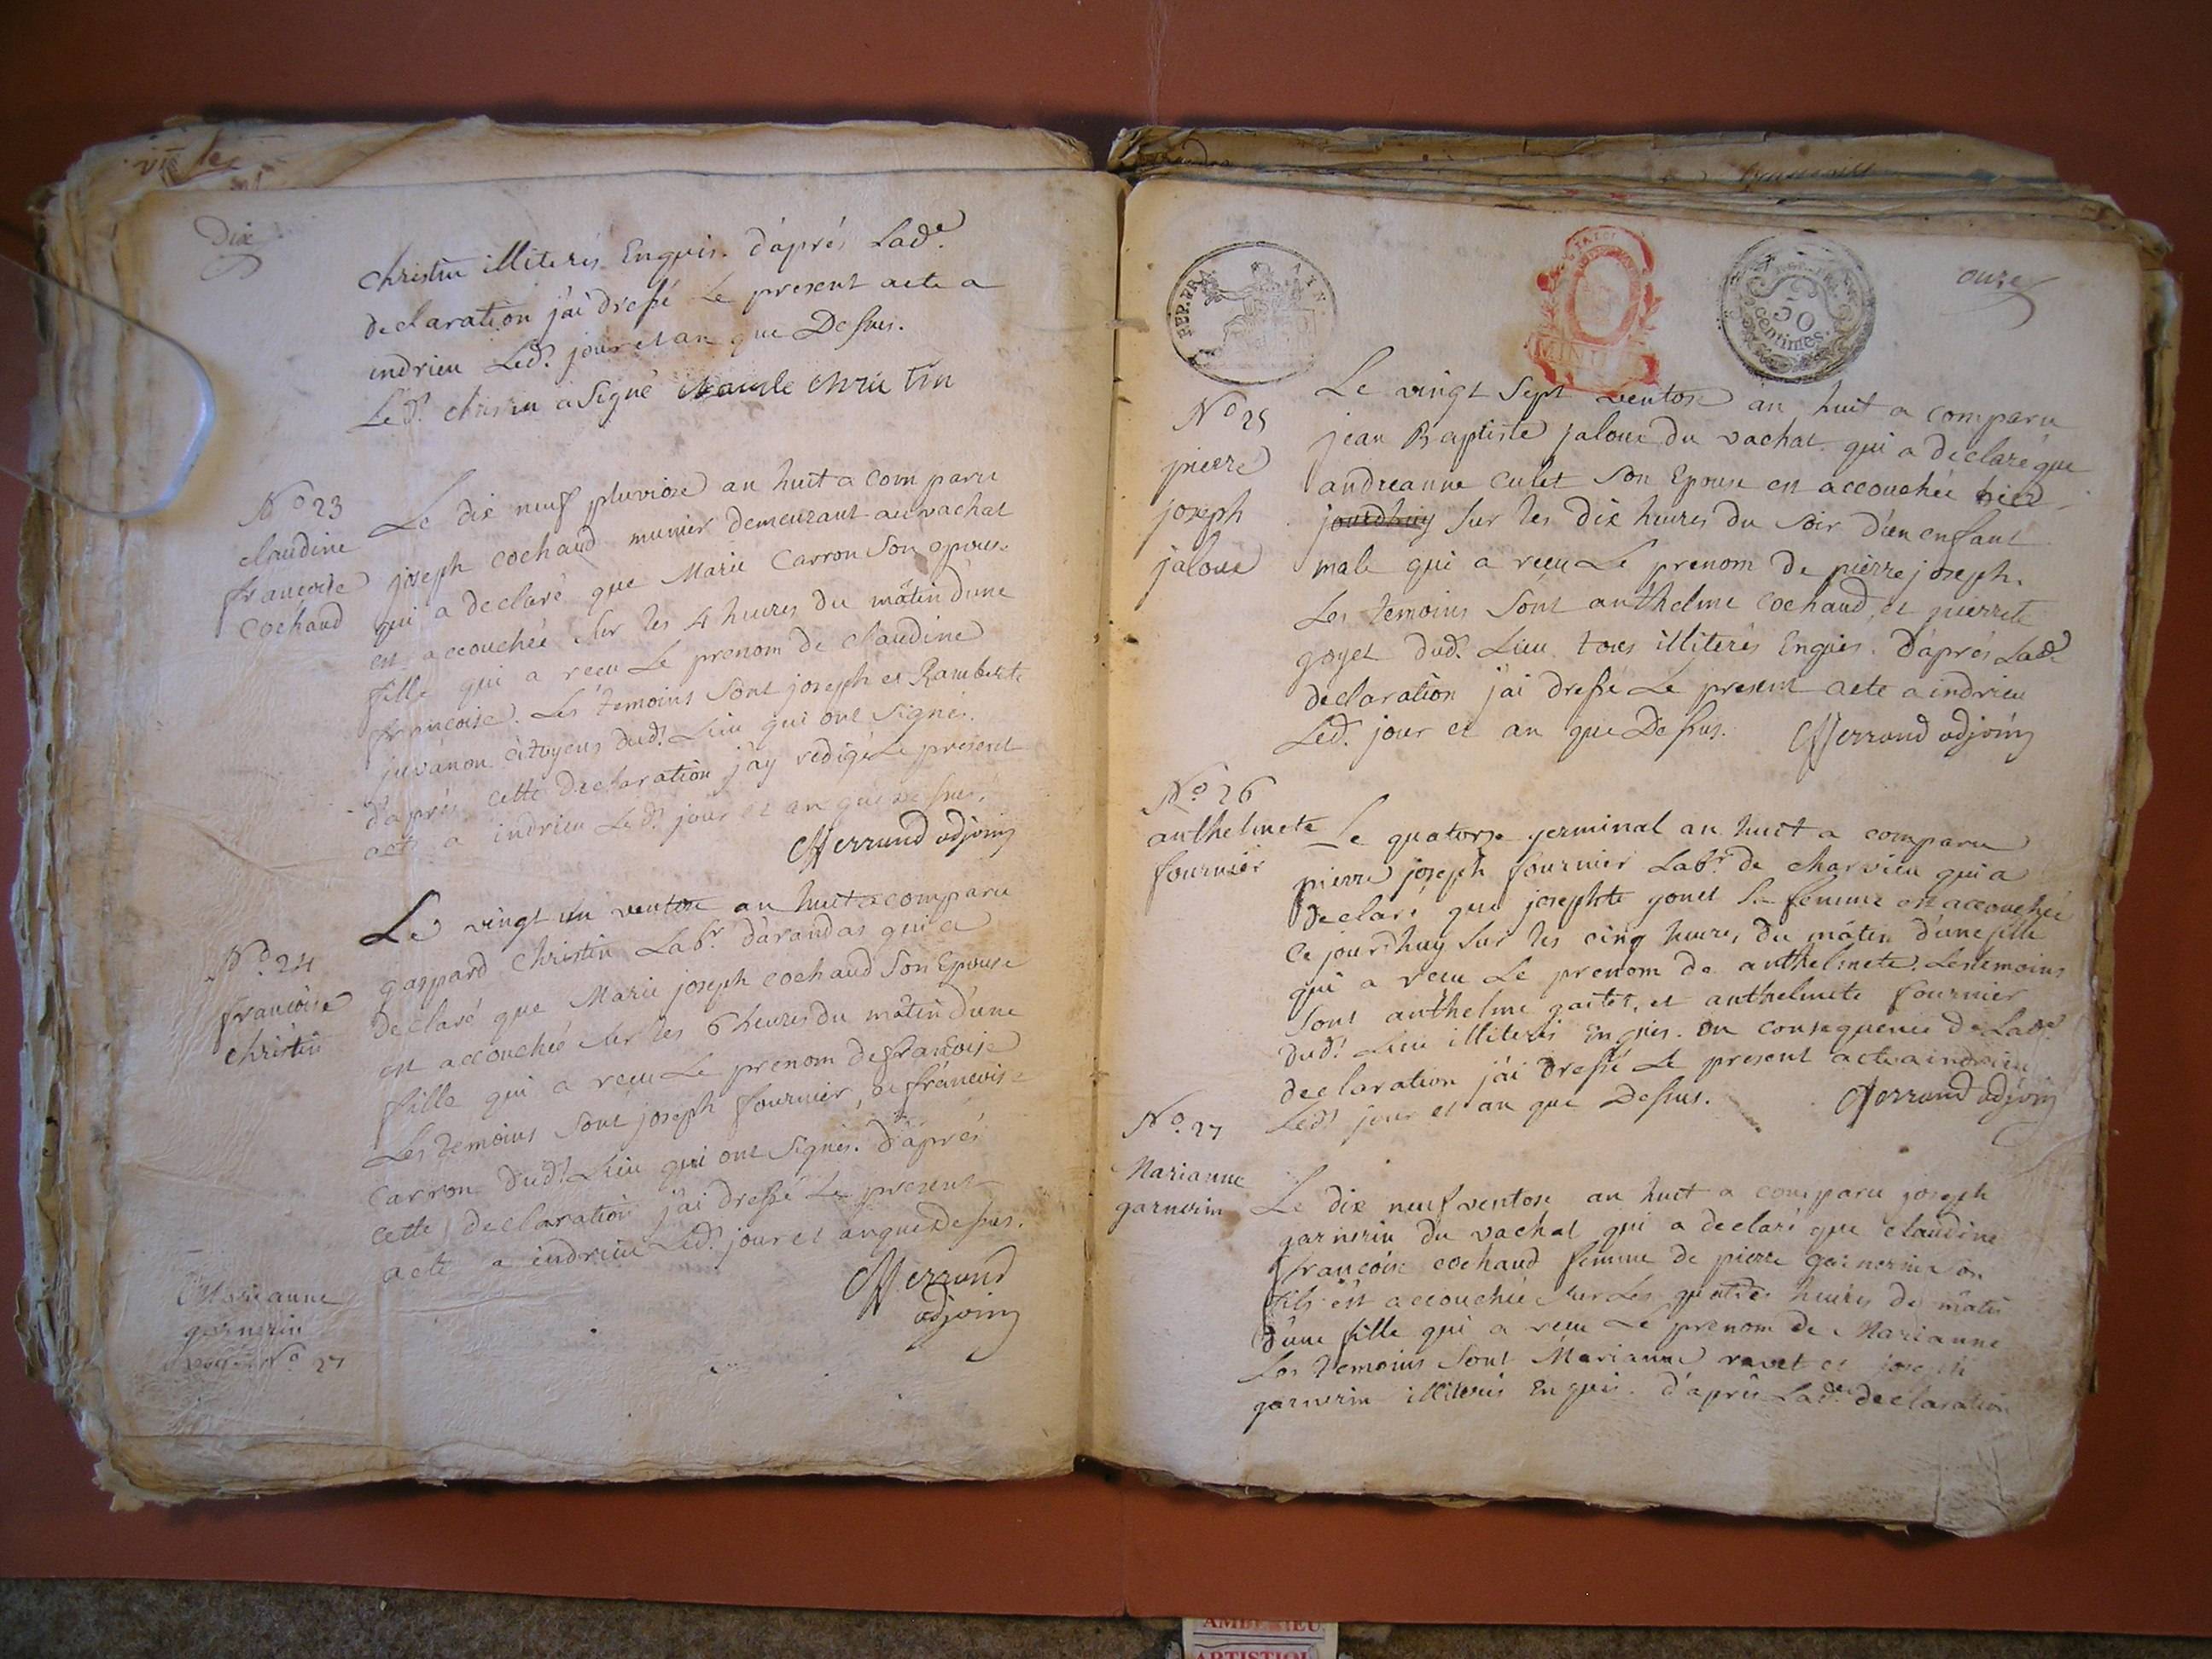 Dix
christin illiterés Enquis. d'aprés Lad.e
declaration j'ai dressé Le present acte a
indrieu Led.t jour et an que Dessus.
Led.t christin a signé claude christin
N.o 23
claudine
francoise
cochaud
Le dix neuf pluviose an huit a comparu
joseph cochaud munier demeurant au vachat
qui a declaré que Marie Carron Son epouse
est accouchée sur les 4 heures du mâtin d'une
fille qui a recu Le prenom de claudine
francoise. Les temoins Sont joseph et Ramberte
juvanon citoyens dud.t Lieu qui ont signés.
d'aprés cette declaration j'ay redigé Le present
acte a indrieu Led.t jour et an que dessus.
Merrand adjoing
N.o 24
francoise
christin
Le vingt un ventose an huit a comparu
gaspard christin Lab.r d'arandas qui a
declaré que Marie joseph cochaud Son Epouse
est accouchée sur les 6 heures du mâtin d'une
fille qui a recu Le prenom de francoise
Les temoins Sont joseph fournier, et francoise
Carron dud.t Lieu qui ont signés. d'aprés
cette declaration j'ai dressé Le present
acte a indrieu Led.t jour et an que dessus.
Merrand
adjoing
Marianne
garnerin
N.o 27
onze
REP. FRA
50
centimes
N.o 25
pierre
joseph
jaloux
Le vingt Sept ventose an huit a comparu
jean Baptiste jaloux du vachat qui a declaré que
andreanne culet Son Epouse est accouchée hier
jourdhuy Sur les dix heures du Soir d'un enfant
male qui a recu Le prenom de pierre joseph.
Les temoins Sont anthelme cochaud, et pierrete
goyet dud.t Lieu tous illiterés Enquis. d'aprés Lad.e
declaration j'ai dressé Le present acte a indrieu
Led.t jour et an que Dessus. Merrand adjoing
N.o 26
anthelmete
fournier
Le quatorze germinal an huit a comparu
pierre joseph fournier Lab.r de charvieu qui a
declaré que josephte gonet Sa femme est accouchée
ce jourdhuy Sur les cinq heures du mâtin d'une fille
qui a recu Le prenom de anthelmete. Les temoins
Sont anthelme et anthelmete fournier
dud.t Lieu illiterés Enquis. en consequence de Lad.e
declaration j'ai dressé Le present acte a indrieu
Led.t jour et an que Dessus. Merrand adjoing
N.o 27
Marianne
garnerin
Le dix neuf ventose an huit a comparu joseph
garnerin du vachat qui a declaré que claudine
francoise cochaud femme de pierre garnerin Son
fils est accouchée sur Les quatres heures de mâtin
d'une fille qui a recu Le prenom de Marianne
Les temoins Sont Marianne ravet et joseph
garnerin illiterés Enquis. d'aprés Lad.e declaration